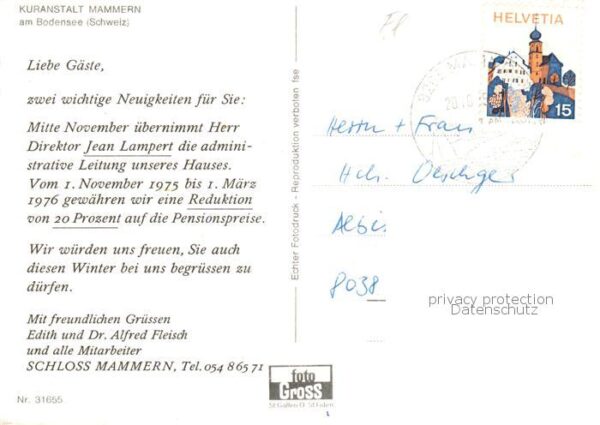 KURANSTALT MAMMERN
am Bodensee (Schweiz)
Liebe Gäste,
zwei wichtige Neuigkeiten für Sie:
Mitte November übernimmt Herr
Direktor Jean Lampert die admini-
strative Leitung unseres Hauses.
Vom 1. November 1975 bis 1. März
1976 gewähren wir eine Reduktion
von 20 Prozent auf die Pensionspreise.
Wir würden uns freuen, Sie auch
diesen Winter bei uns begrüssen zu
dürfen.
Mit freundlichen Grüssen
Edith und Dr. Alfred Fleisch
und alle Mitarbeiter
SCHLOSS MAMMERN, Tel. 054 86571
Nr. 31655
Echter Fotodruck - Reproduktion verboten fse
foto
Gross
St Gallen O St Fiden
HELVETIA
15
Herrn + Frau
Hch. Oeschger
Albis
8038
privacy protection
Datenschutz